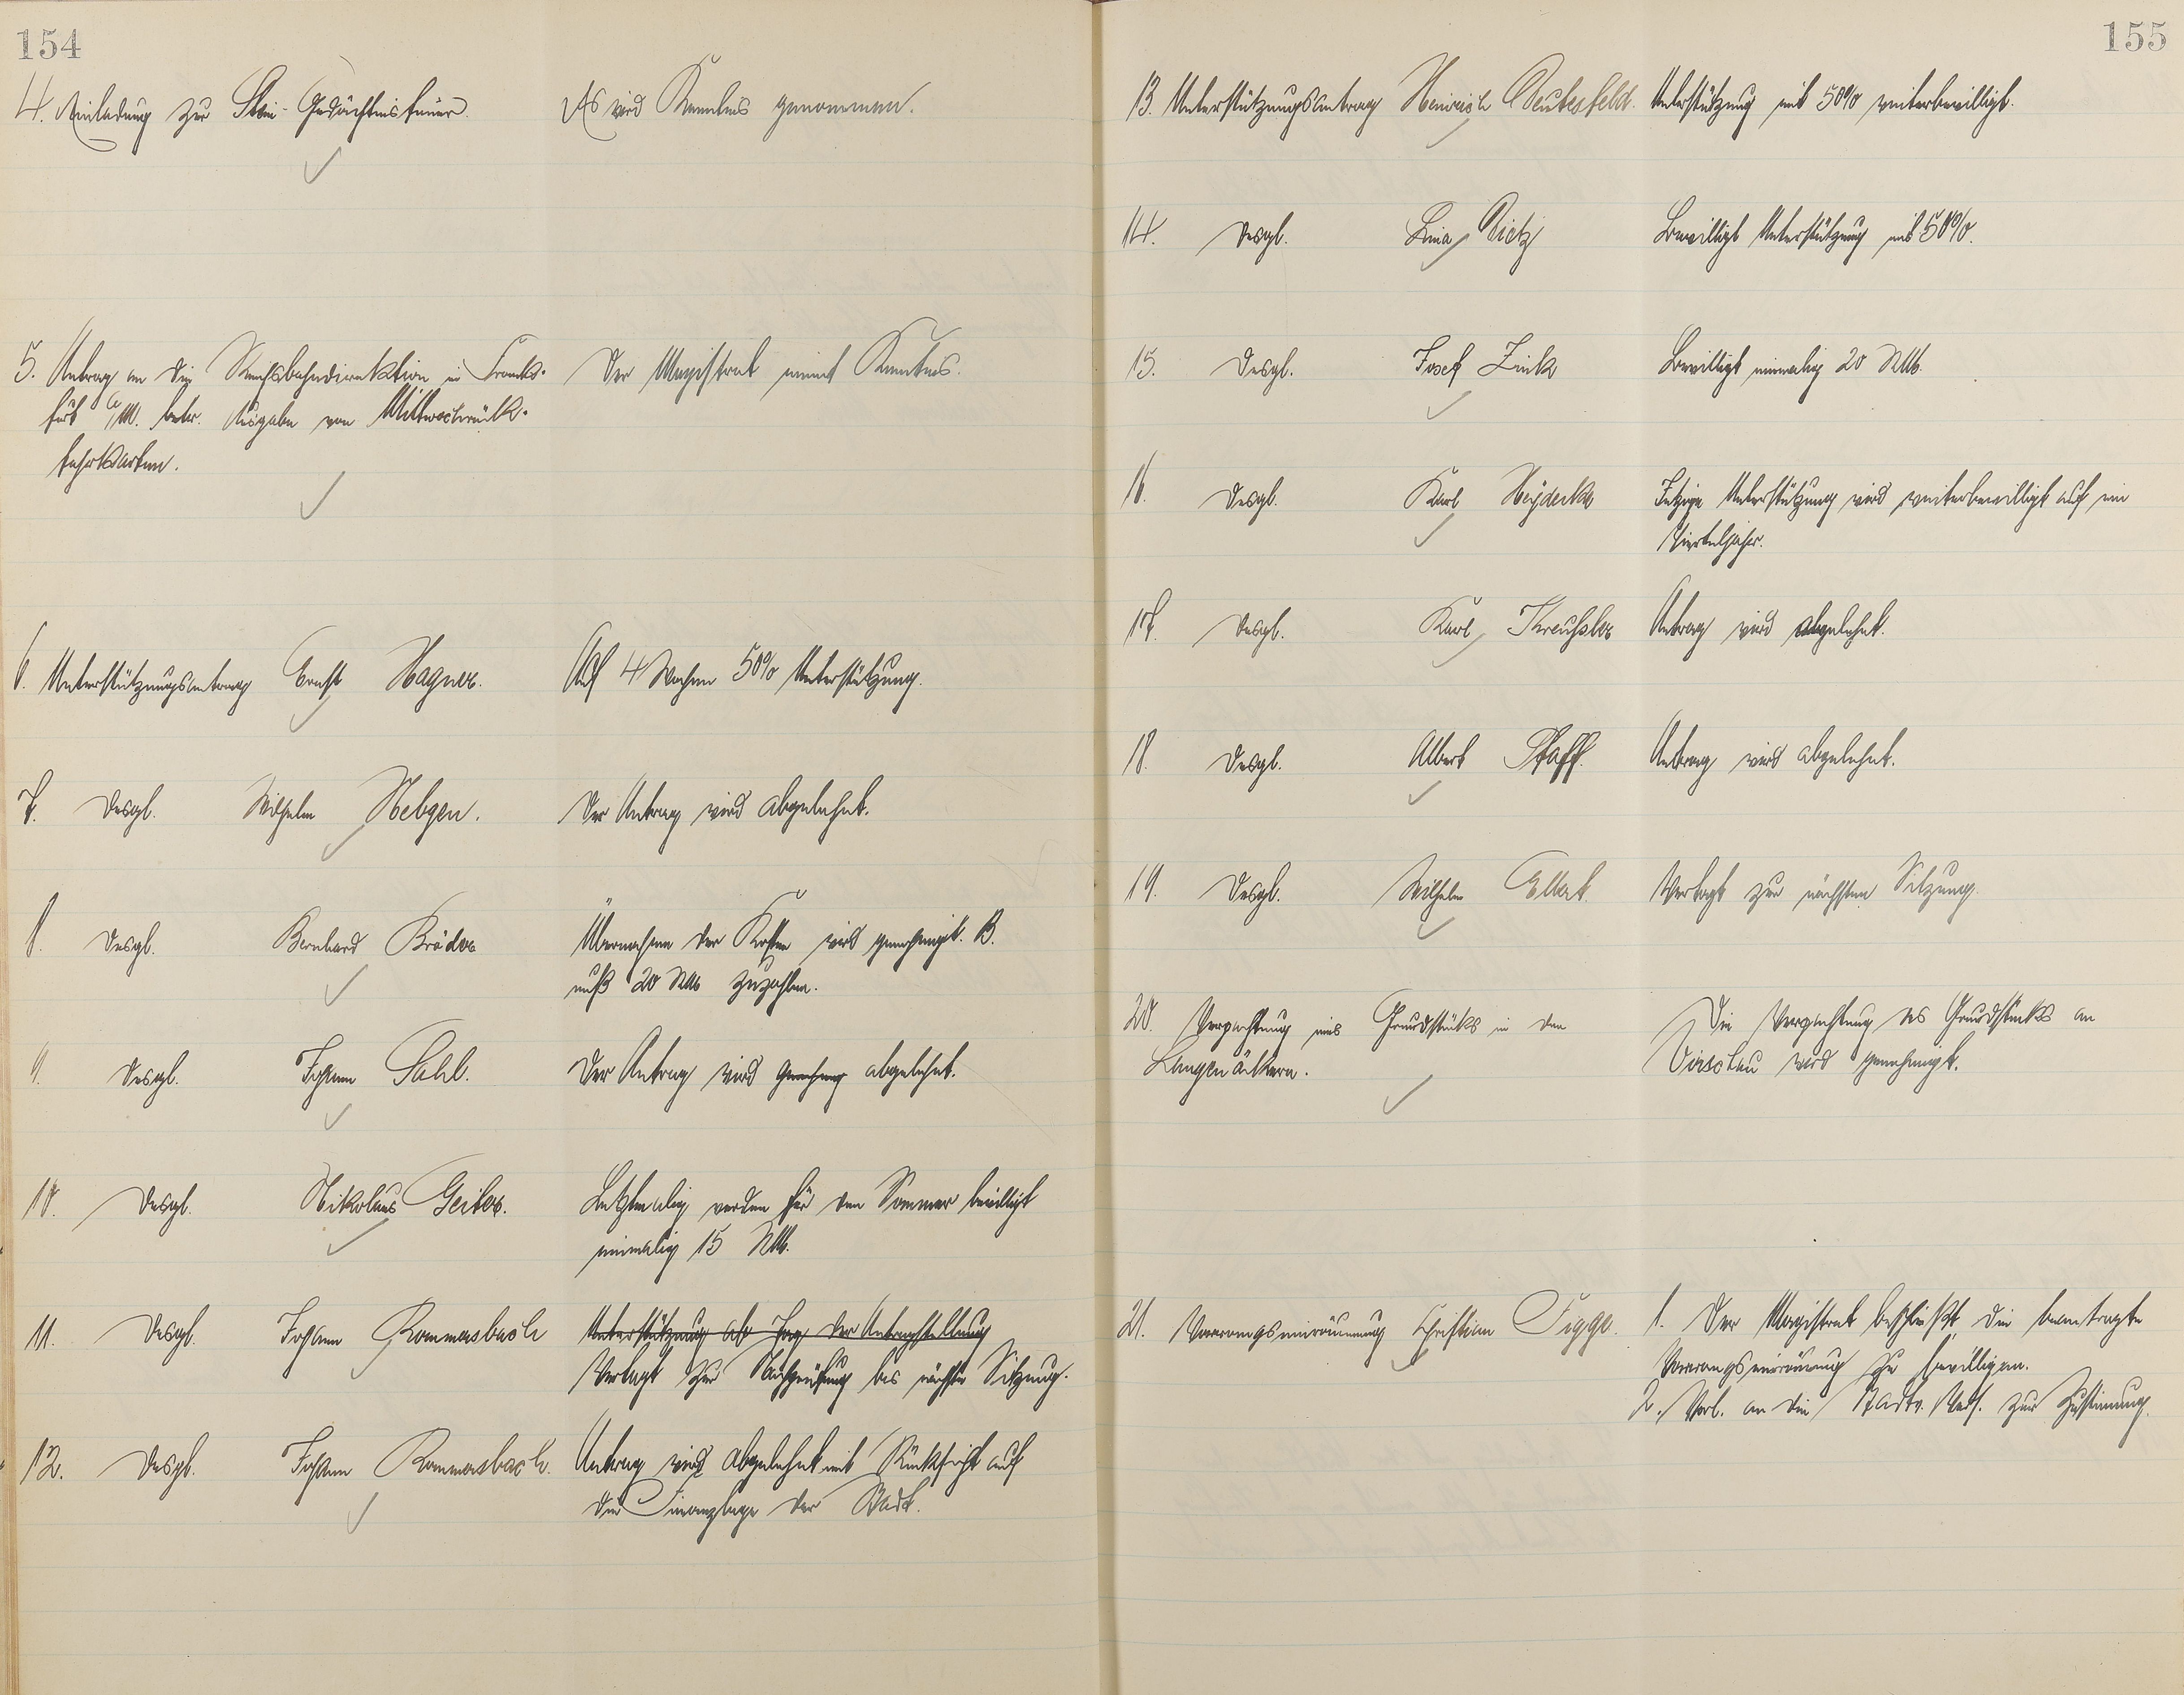 154
4. Einladung zur Stein-Gedächtnisfeier. Es wird Kenntnis genommen.
5. Antrag an die Reichsbahndirektion in Frank- Der Magistrat nimmt Kenntnis.
furt a/M. betr. Ausgabe von Mittwochrück-
fahrkarten.
6. Unterstützungsantrag Ernst Hagner. Auf 4 Wochen 50% Unterstützung.
7. Desgl. Wilhelm Hebgen. Der Antrag wird abgelehnt.
8. Desgl. Bernhard Bröder Übernahme der Kosten wird genehmigt. B.
muß 20 RM zuzahlen.
9. Desgl. Johann Sahl. Der Antrag wird genehmig abgelehnt.
10. Desgl. Nikolaus Geiter. Letztmalig werden für den Sommer bewilligt
einmalig 15 RM.
11. Desgl. Johann Rommersbach Unterstützung ab Tag der Antragstellung
Vertagt zur Nachprüfung bis nächste Sitzung.
12. Desgl. Johann Rommersbach. Antrag wird abgelehnt mit Rücksicht auf
die Finanzlage der Stadt.
155
13. Unterstützungsantrag Heinrich Deutesfeld. Unterstützung mit 50% weiterbewilligt.
14. Desgl. Lina Dietz Bewilligt Unterstützung mit 50%.
15. Desgl. Josef Zink Bewilligt einmalig 20 RM.
16. Desgl. Karl Heyderk Jetzige Unterstützung wird weiterbewilligt auf ein
Vierteljahr.
17. Desgl. Karl Kreußler Antrag wird abgelehnt.
18. Desgl. Albert Pfaff. Antrag wird abgelehnt.
19. Desgl. Wilhelm Elbert. Vertagt zur nächsten Sitzung.
20. Verpachtung eines Grundstücks in den Die Verpachtung des Grundstücks an
Langenäckern. wird genehmigt.
21. Vorrangseinräumung Christian Figge. 1. Der Magistrat beschließt, die beantragte
Vorrangseinräumung zu bewilligen.
2. Vorl. an die Stadtv. Vers. zur Zustimmung.